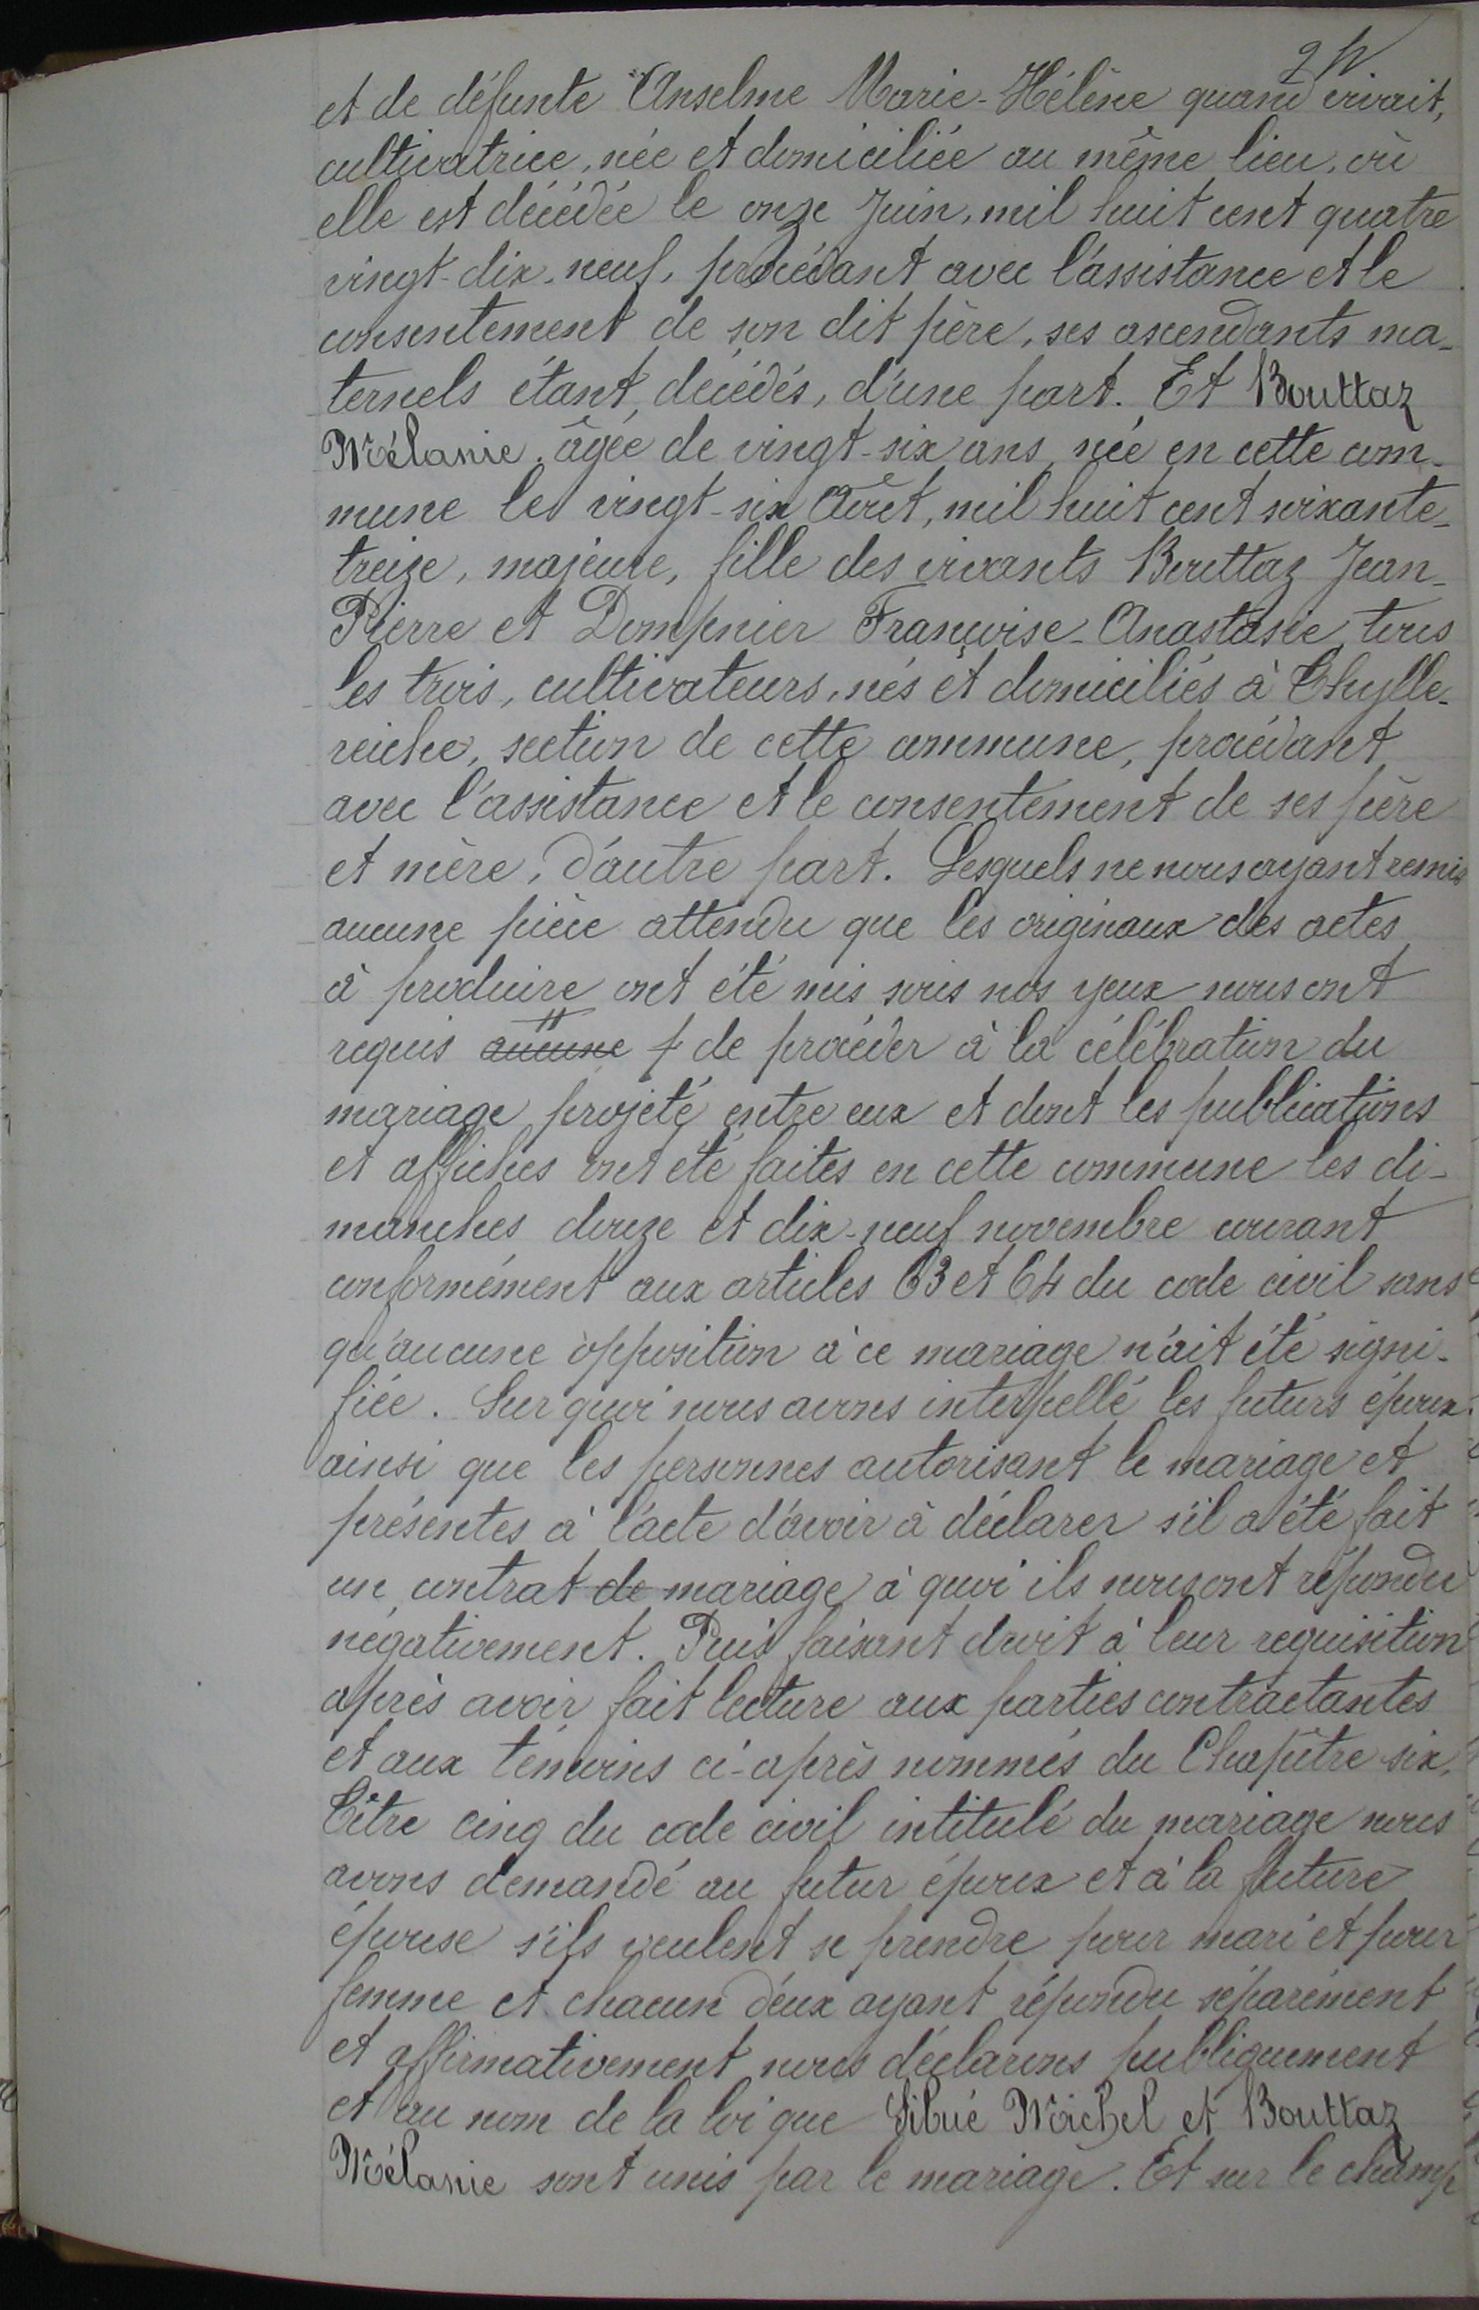 et de défunte Anselme Marie-Hélène quand vivait,
cultivatrice, née et domiciliée au même lieu, où
elle est décédée le onze Juin, mil huit cent quatre
vingt-dix-neuf, procédant avec l'assistance et le
consentement de son dit père, ses ascendants ma-
ternels étant décédés, d'une part. Et Bouttaz
Mélanie, âgée de vingt-six ans, née en cette com-
mune les vingt-six Août, mil huit cent soixante-
treize, majeure, fille des vivants Bouttaz Jean-
Pierre et Dompnier Françoise-Anastasie, tous
les trois, cultivateurs, nés et domiciliés à Thylle-
reiche, section de cette commune, procédant
avec l'assistance et le consentement de ses père
et mère, d'autre part. Lesquels ne nous ayant remis
aucune pièce attendu que les originaux des actes
à produire ont été mis sous nos yeux nous ont
requis aucune de procéder à la célébration du
mariage projeté entre eux et dont les publications
et affiches ont été faites en cette commune les di-
manches douze et dix-neuf novembre courant
conformément aux articles 63 et 64 du code civil sans
qu'aucune opposition à ce mariage n'ait été signi-
fiée. Sur quoi nous avons interpellé les futurs époux
ainsi que les personnes autorisant le mariage et
présentes à l'acte d'avoir à déclarer s'il a été fait
un contrat de mariage à quoi ils nous ont répondu
négativement. Puis faisant droit à leur requisition
après avoir fait lecture aux parties contractantes
et aux témoins ci-après nommés du Chapître six,
Titre cinq du code civil intitulé du mariage nous
avons demandé au futur époux et à la future
épouse s'ils veulent se prendre pour mari et pour
femme et chacun d'eux ayant répondu séparément
et affirmativement nous déclarons publiquement
et au nom de la loi que Sibué Michel et Bouttaz
Mélanie sont unis par le mariage. Et sur le champ